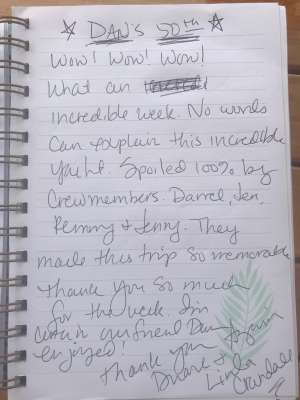 ☆ DAN's 50th ☆
Wow! Wow! Wow!
What an
incredible week. No words
can explain this incredible
yacht. Spoiled 100% by
Crewmembers. Darrel, Jen,
Remmy & Jenny. They
made this trip so memorable
Thank you so much
for the week. I'm
certain our friend Dan
enjoyed!
Thank you
Duane &
Linda
Crandall